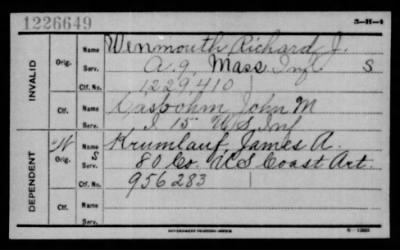 1226649
3-H-4
INVALID
Orig.
Name Wenmouth, Richard J.
Serv. A. 9, Mass Inf. S
Ctf. No. 1,229,410
Ctf.
Name John M
Serv. I. 15 U S Inf
DEPENDENT
Orig.
W
S
Name Krumlauf, James A.
Serv. 80 Co. U S Coast Art.
Ctf. No. 956283
Ctf.
Name
Serv.
GOVERNMENT PRINTING OFFICE